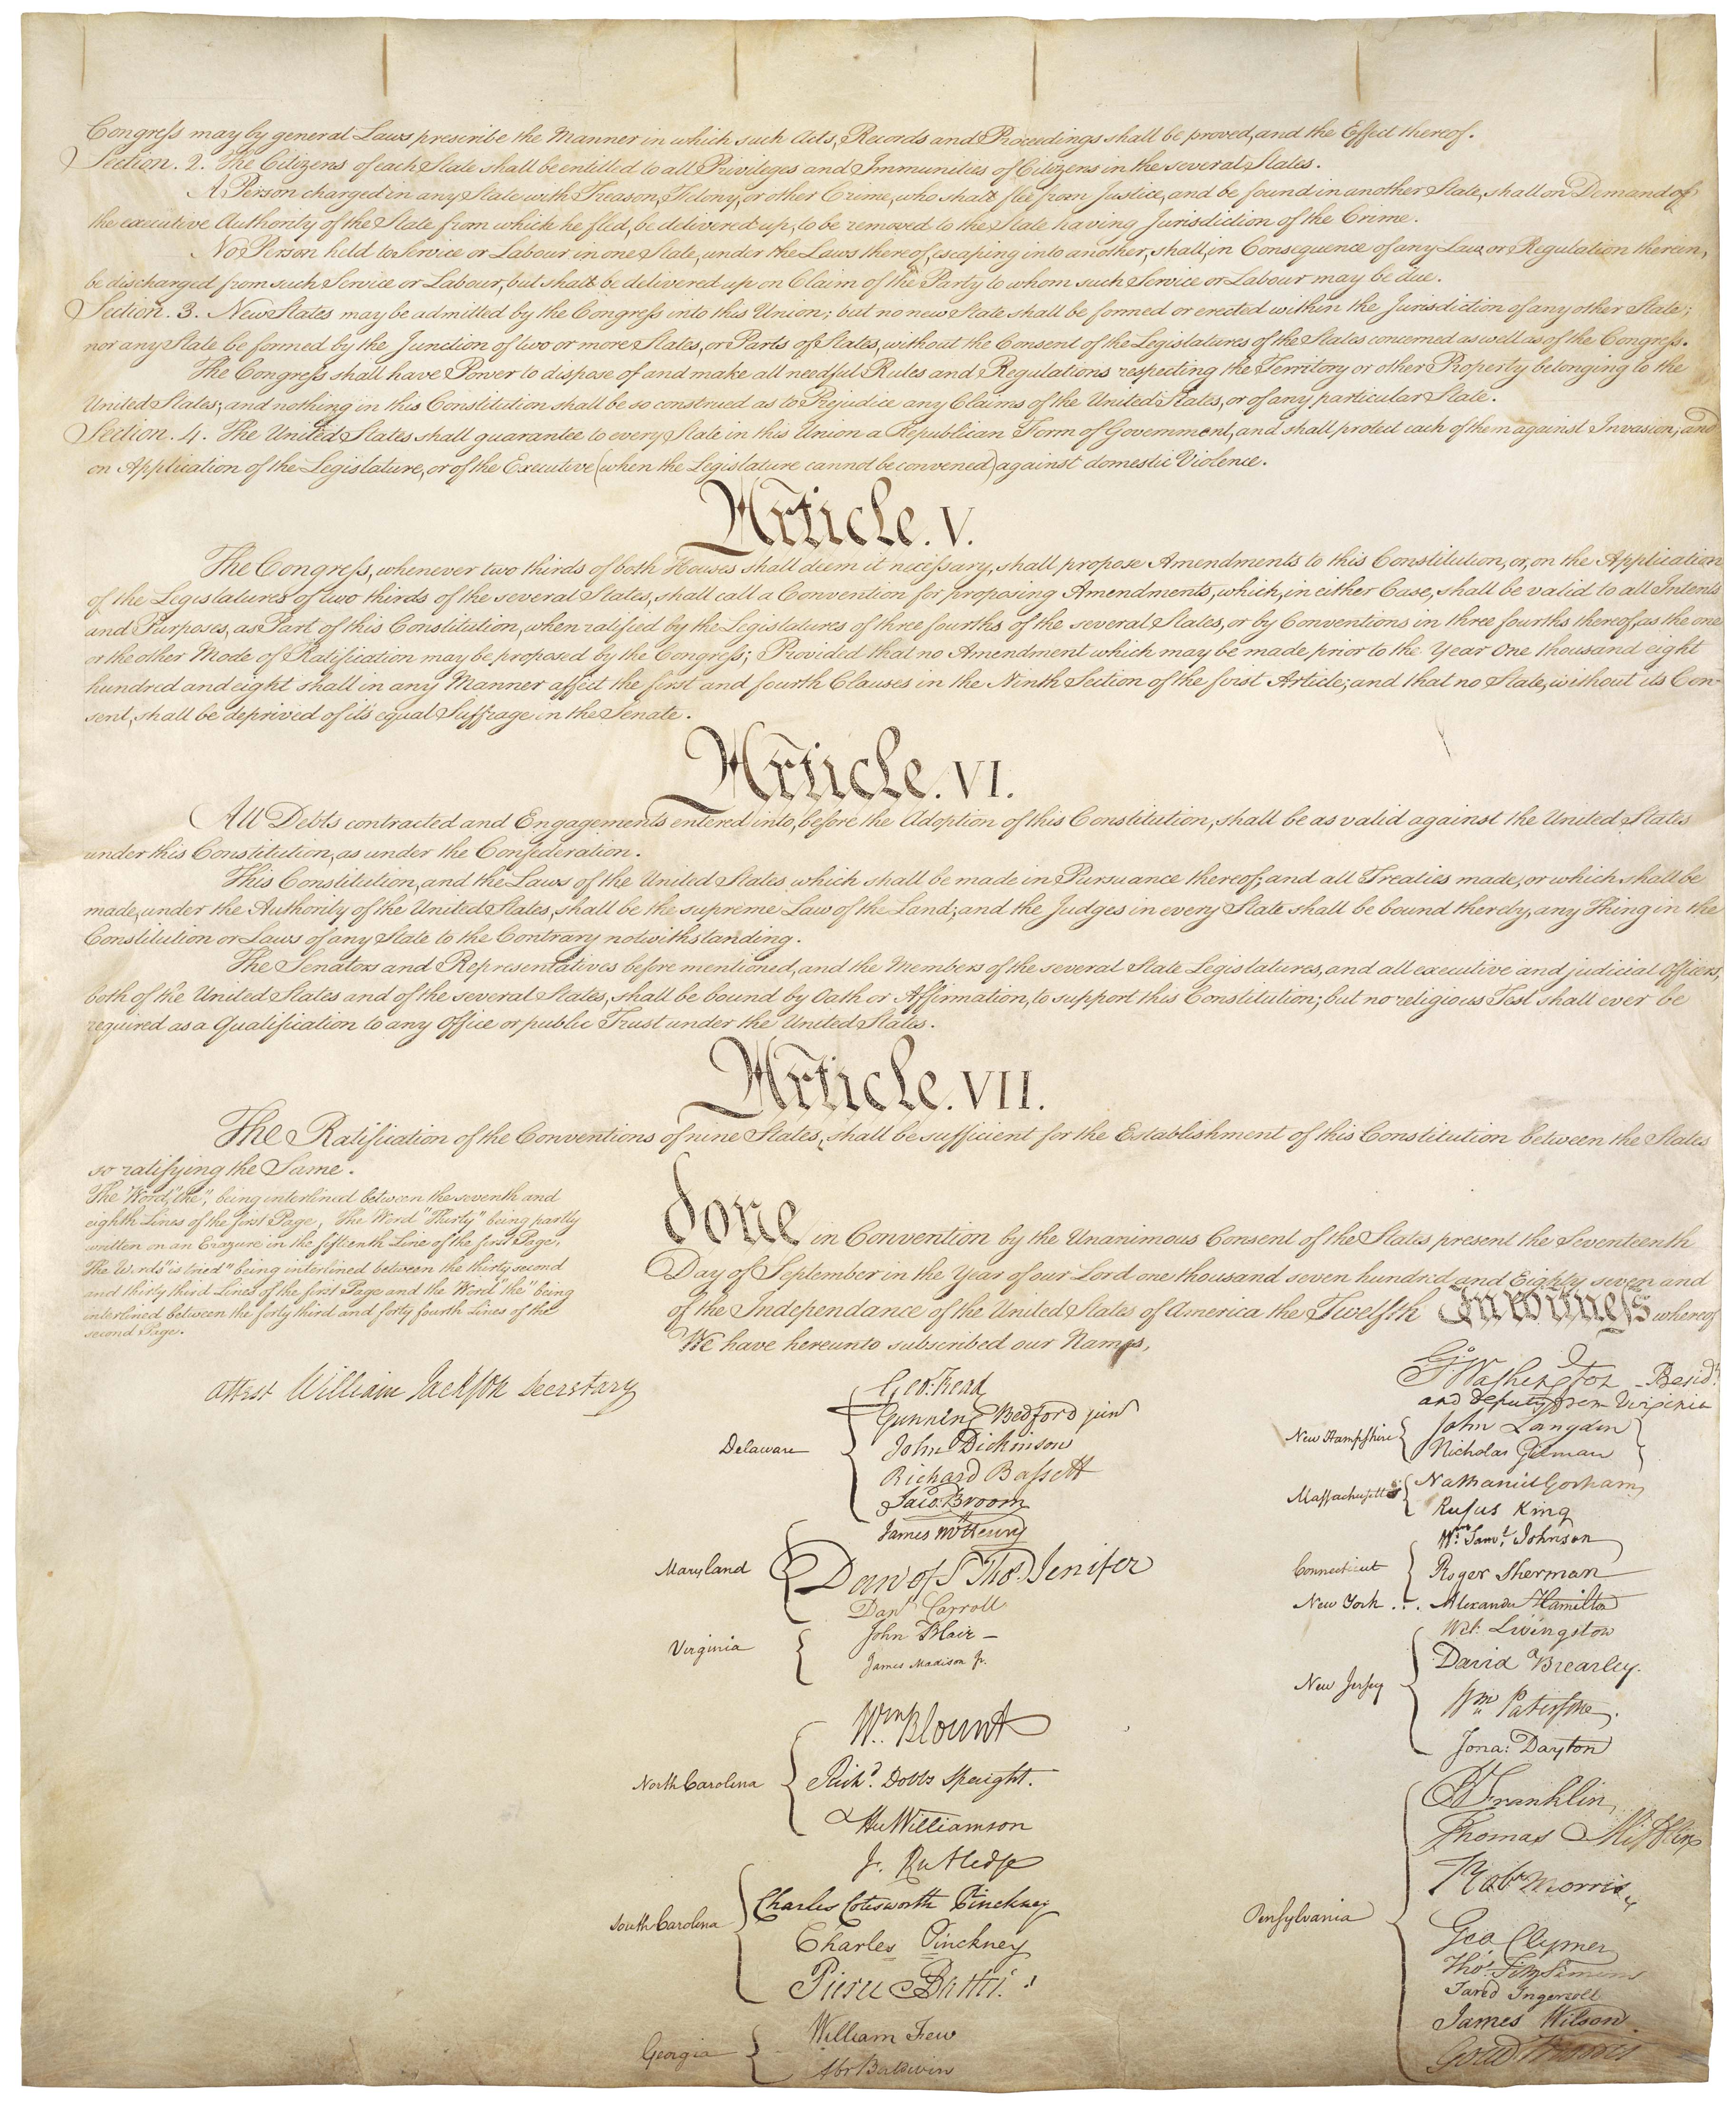 Congress may by general Laws prescribe the Manner in which such Acts, Records and Proceedings shall be proved, and the Effect thereof.
Section. 2. The Citizens of each State shall be entitled to all Privileges and Immunities of Citizens in the several States.
A Person charged in any State with Treason, Felony, or other Crime, who shall flee from Justice, and be found in another State, shall on Demand of
the executive Authority of the State from which he fled, be delivered up, to be removed to the State having Jurisdiction of the Crime.
No Person held to Service or Labour in one State, under the Laws thereof, escaping into another, shall, in Consequence of any Law or Regulation therein,
be discharged from such Service or Labour, but shall be delivered up on Claim of the Party to whom such Service or Labour may be due.
Section. 3. New States may be admitted by the Congress into this Union; but no new State shall be formed or erected within the Jurisdiction of any other State;
nor any State be formed by the Junction of two or more States, or Parts of States, without the Consent of the Legislatures of the States concerned as well as of the Congress.
The Congress shall have Power to dispose of and make all needful Rules and Regulations respecting the Territory or other Property belonging to the
United States; and nothing in this Constitution shall be so construed as to Prejudice any Claims of the United States, or of any particular State.
Section. 4. The United States shall guarantee to every State in this Union a Republican Form of Government, and shall protect each of them against Invasion; and
on Application of the Legislature, or of the Executive (when the Legislature cannot be convened) against domestic Violence.
Article. V.
The Congress, whenever two thirds of both Houses shall deem it necessary, shall propose Amendments to this Constitution, or, on the Application
of the Legislatures of two thirds of the several States, shall call a Convention for proposing Amendments, which, in either Case, shall be valid to all Intents
and Purposes, as Part of this Constitution, when ratified by the Legislatures of three fourths of the several States, or by Conventions in three fourths thereof, as the one
or the other Mode of Ratification may be proposed by the Congress; Provided that no Amendment which may be made prior to the Year One thousand eight
hundred and eight shall in any Manner affect the first and fourth Clauses in the Ninth Section of the first Article; and that no State, without its Con-
sent, shall be deprived of it's equal Suffrage in the Senate.
Article. VI.
All Debts contracted and Engagements entered into, before the Adoption of this Constitution, shall be as valid against the United States
under this Constitution, as under the Confederation.
This Constitution, and the Laws of the United States which shall be made in Pursuance thereof; and all Treaties made, or which shall be
made, under the Authority of the United States, shall be the supreme Law of the Land; and the Judges in every State shall be bound thereby, any Thing in the
Constitution or Laws of any State to the Contrary notwithstanding.
The Senators and Representatives before mentioned, and the Members of the several State Legislatures, and all executive and judicial Officers,
both of the United States and of the several States, shall be bound by Oath or Affirmation, to support this Constitution; but no religious Test shall ever be
required as a Qualification to any Office or public Trust under the United States.
Article. VII.
The Ratification of the Conventions of nine States, shall be sufficient for the Establishment of this Constitution between the States
so ratifying the Same.
The Word, "the," being interlined between the seventh and
eighth Lines of the first Page, The Word "Thirty" being partly
written on an Erazure in the fifteenth Line of the first Page,
The Words "is tried" being interlined between the thirty second
and thirty third Lines of the first Page and the Word "the" being
interlined between the forty third and forty fourth Lines of the
second Page.
Attest William Jackson Secretary
done in Convention by the Unanimous Consent of the States present the Seventeenth
Day of September in the Year of our Lord one thousand seven hundred and Eighty seven and
of the Independance of the United States of America the Twelfth In witness whereof
We have hereunto subscribed our Names,
Delaware
Geo: Read
Gunning Bedford jun
John Dickinson
Richard Bassett
Jaco: Broom
Maryland
James McHenry
Dan of St Thos. Jenifer
Danl Carroll
Virginia
John Blair —
James Madison Jr.
North Carolina
Wm. Blount
Richd. Dobbs Spaight.
Hu Williamson
South Carolina
J. Rutledge
Charles Cotesworth Pinckney
Charles Pinckney
Pierce Butler.
Georgia
William Few
Abr Baldwin
Go. Washington—Presidt.
and deputy from Virginia
New Hampshire
John Langdon
Nicholas Gilman
Massachusetts
Nathaniel Gorham
Rufus King
Connecticut
Wm. Saml. Johnson
Roger Sherman
New York . . .
Alexander Hamilton
New Jersey
Wil: Livingston
David Brearley.
Wm Paterson.
Jona: Dayton
Pensylvania
B Franklin
Thomas Mifflin
Robt Morris
Geo. Clymer
Thos. FitzSimons
Jared Ingersoll
James Wilson.
Gouv Morris